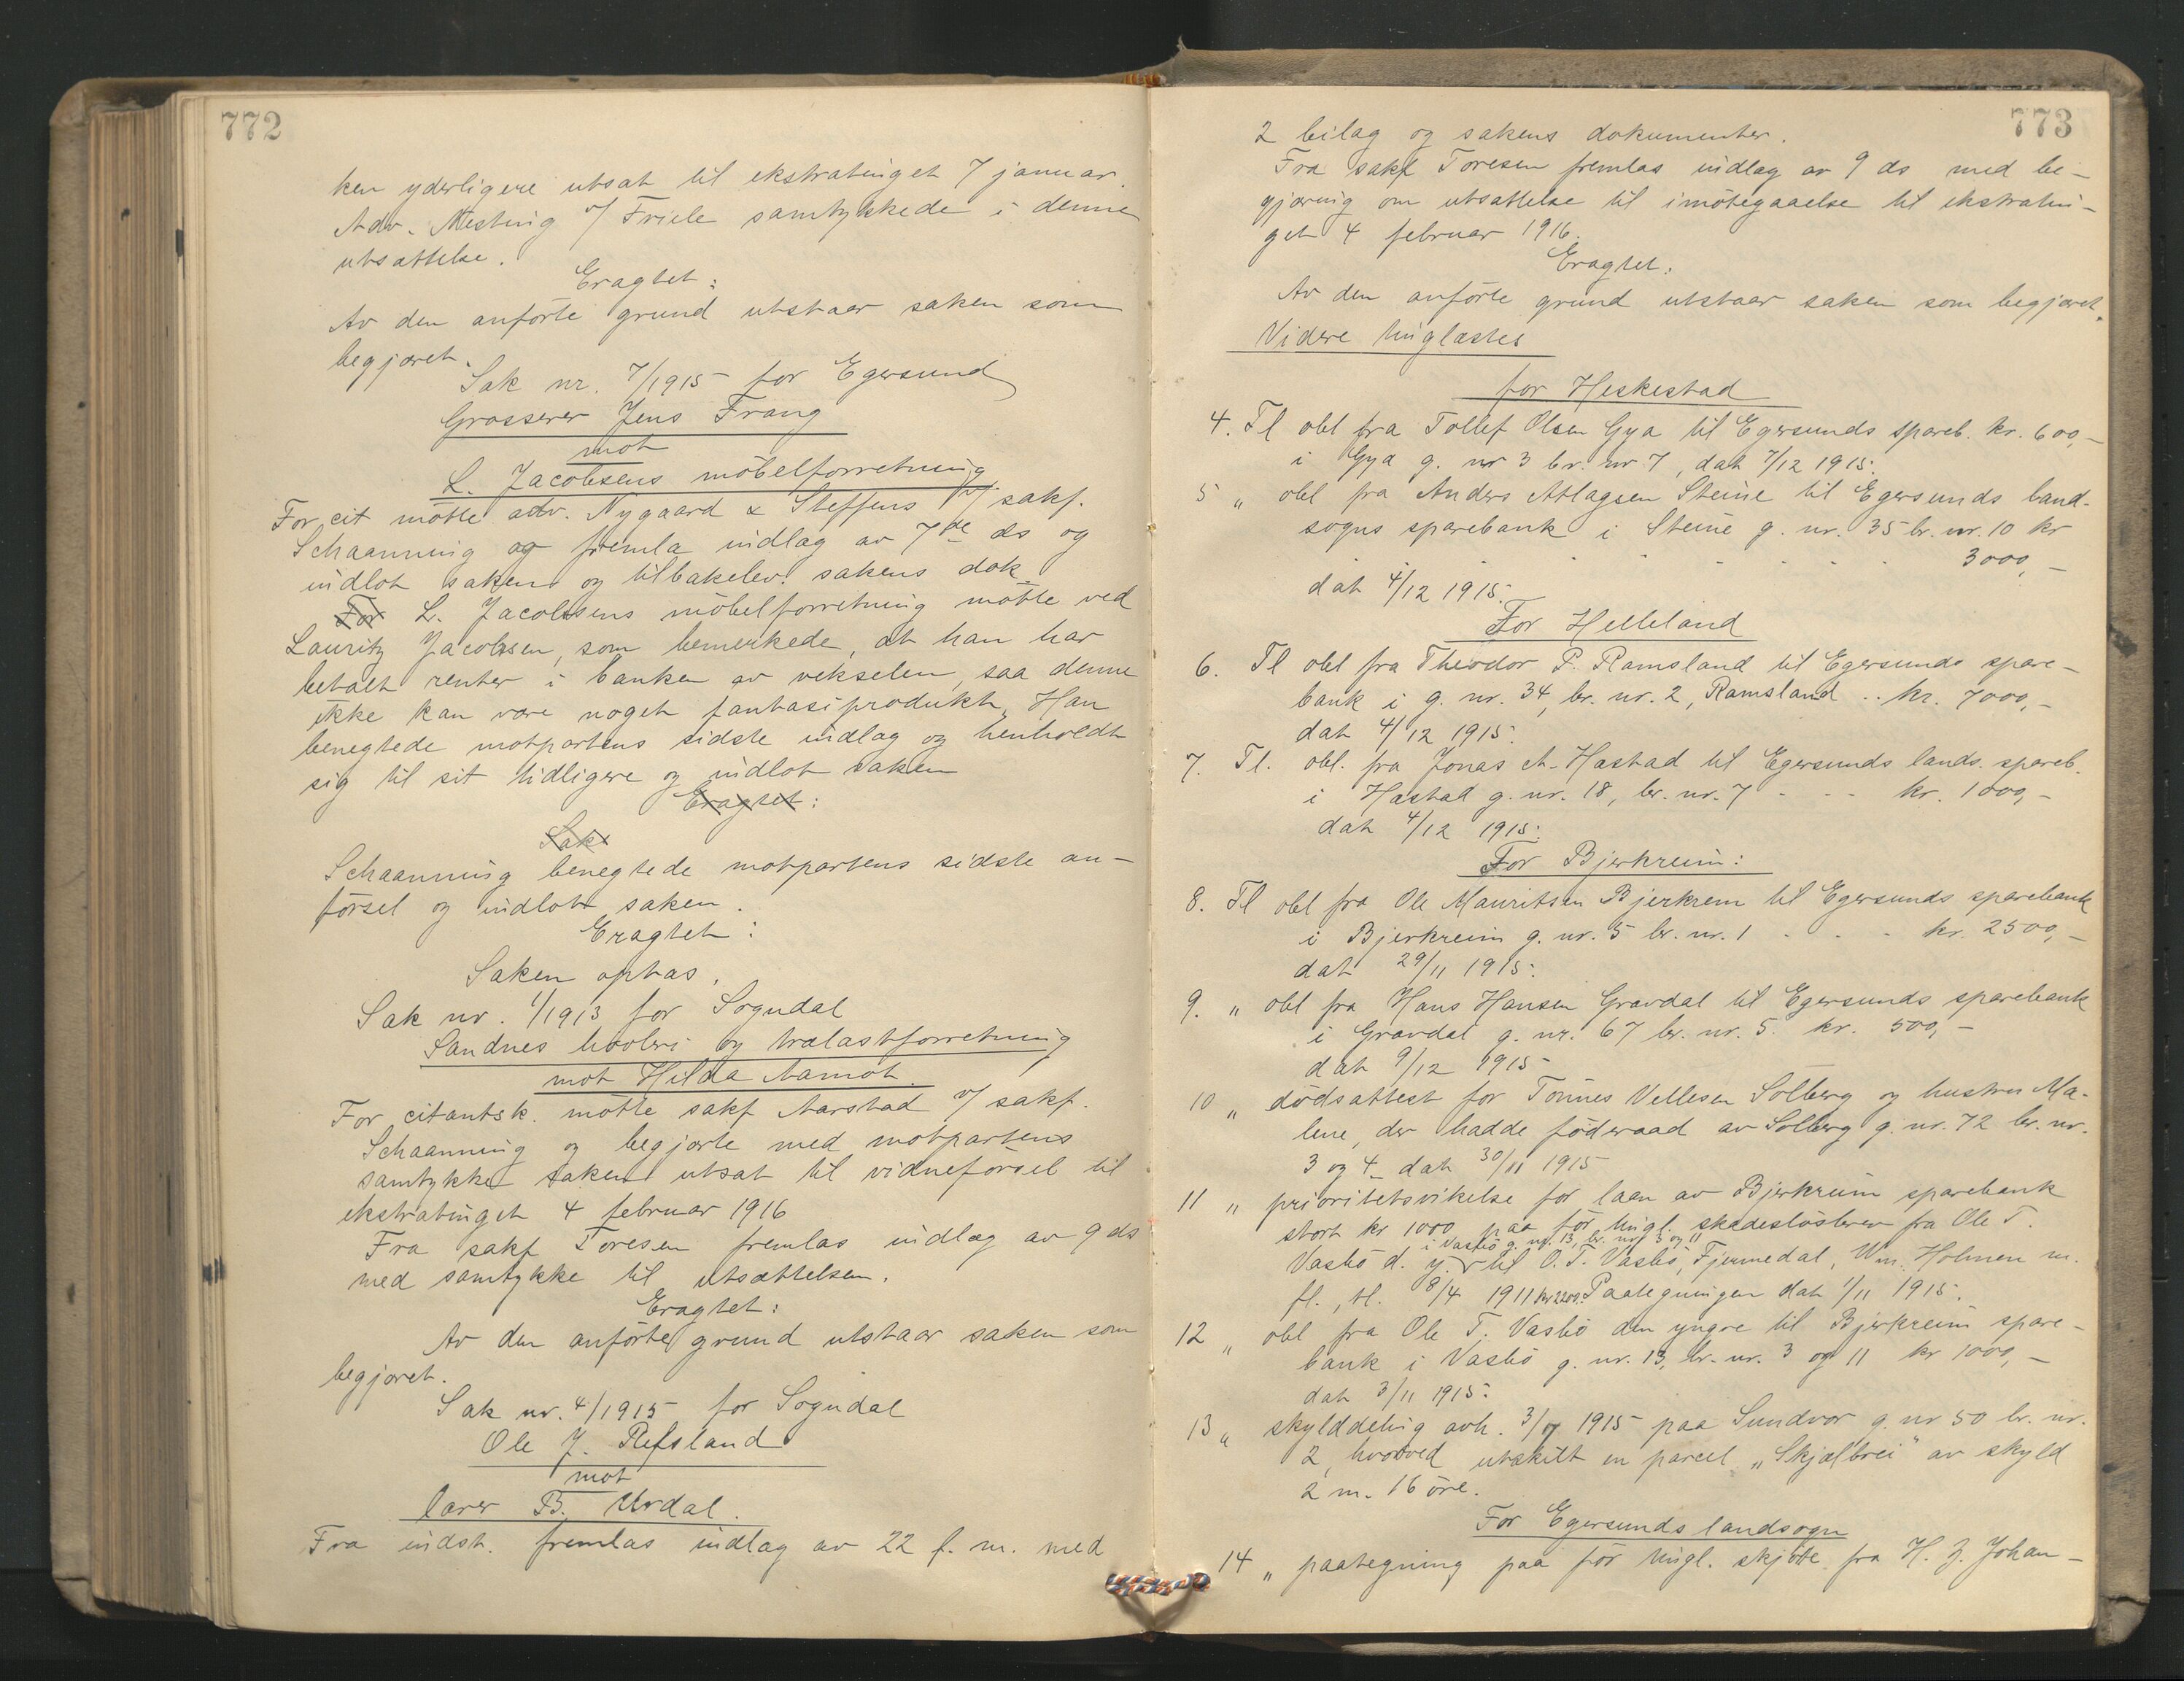 772
ken yderligere utsat til ekstratinget 7 januar.
Adv. Mesting v/ Friele samtykkede i denne
utsættelse.
Eragtet:
Av den anförte grund utstaar saken som
begjæret.
Sak nr. 7/1915 for Egersund
Grosserer Jens Frang
mot
L. Jacobsens möbelforretning
For cit mötte adv. Nygaard & Steffens v/ sakf.
Schaanning og fremla indlag av 7de ds og
indlot saken og tilbakelev. sakens dok.
For L. Jacobsens möbelforretning mötte ved
Lauritz Jacobsen, som bemerkede, at han har
betalt renter i banken av vekselen, saa denne
ikke kan være noget fantasiprodukt. Han
benegtede motpartens sidste indlag og henholdt
sig til sit tidligere og indlot saken
Eragtet:
Sak
Schaanning benegtede motpartens sidste an-
försel og indlot saken.
Eragtet:
Saken optas.
Sak nr. 1/1913 for Sogndal
Sandnes høvleri og trælastforretning
mot Hilda Aamot.
For citantsk. mötte sakf Aarstad v/ sakf.
Schaanning og begjærte med motpartens
samtykke saken utsat til vidneförsel til
ekstratinget 4 februar 1916
Fra sakf Toresen fremlas indlæg av 9 ds
med samtykke til utsættelsen.
Eragtet:
Av den anförte grund utstaar saken som
begjæret.
Sak nr. 4/1915 for Sogndal
Ole J. Refsland
mot
lærer B. Urdal.
Fra indst. fremlas indlag av 22 f. m. med
773
2 bilag og sakens dokumenter.
Fra sakf Toresen fremlas indlag av 9 ds med be-
gjæring om utsættelse til imötegaaelse til ekstratin-
get 4 februar 1916.
Eragtet:
Av den anförte grund utstaar saken som begjæret.
Videre tinglæstes
for Heskestad
4. Tl obl fra Tollef Olsen Gya til Egersunds spareb. kr. 600,-
i Gya g. nr 3 br. nr 7, dat 7/12 1915.
5 " obl fra Anders Atlagsen Steine til Egersunds land-
sogns sparebank i Steine g. nr. 35 br. nr. 10 kr
3000,-
dat 4/12 1915.
For Helleland
6. Tl obl fra Theodor P. Ramsland til Egersunds spare-
bank i g. nr. 34, br. nr. 2, Ramsland .. kr. 7000,-
dat 4/12 1915.
7. Tl. obl. fra Jonas A. Hæstad til Egersunds lands. spareb.
i Hæstad g. nr. 18, br. nr. 7 - - - kr. 1000,-
dat 4/12 1915.
For Bjerkreim:
8. Tl obl fra Ole Mauritsen Bjerkrem til Egersunds sparebank
i Bjerkreim g. nr. 5 br. nr. 1 - - - kr. 2500,-
dat 29/11 1915.
9. " obl fra Hans Hansen Gravdal til Egersunds sparebank
i Gravdal g. nr. 67 br. nr. 5. kr. 500,-
dat 9/12 1915
10 " dödsattest for Tönnes Vellesen Solberg og hustru Ma-
lene, der hadde föderaad av Solberg g. nr. 72 br. nr.
3 og 4 dat 30/11 1915
11 " prioritetsvikelse for laan av Bjerkreim sparebank
stort kr 1000 paa för tingl. skadeslösbrev fra Ole T.
i Vasbö g. nr. 13, br. nr. 3 og 11
Vasbö d. y. til O. T. Vasbö, Fjermedal, Wm. Holmen m.
fl., tl. 8/4 1911 kr 2200. Paategningen dat 1/11 1915.
12 " obl fra Ole T. Vasbö den yngre til Bjerkreim spare-
bank i Vasbö g. nr. 13, br. nr. 3 og 11 kr 1000,-
dat 3/11 1915.
13 " skylddeling avh. 3/7 1915 paa Sundvor g. nr 50 br. nr.
2, hvorved utskilt en parcel "Skjælbrei" av skyld
2 m. 16 öre.
For Egersunds landsogn
14 " paategning paa för tingl. skjöte fra H. Z. Johan-